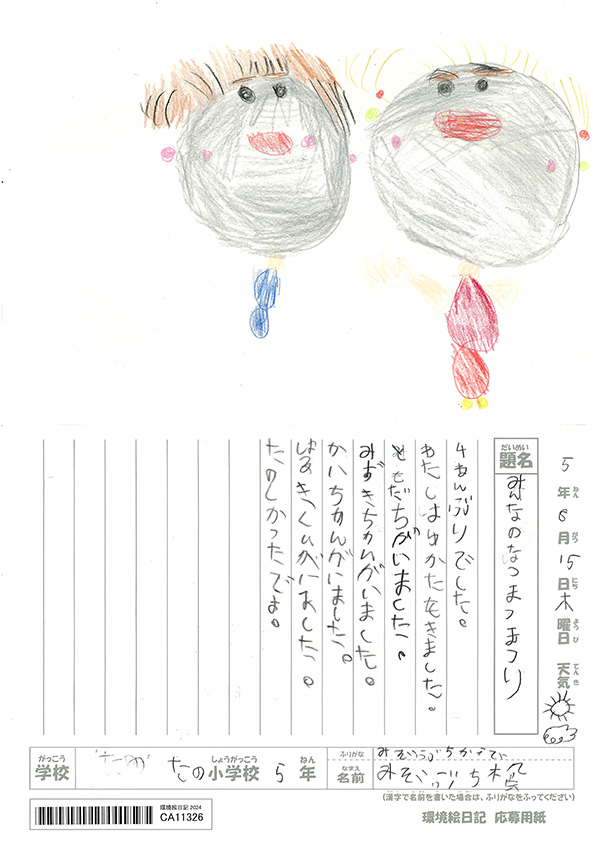 5年8月15日木曜日 天気
ねん がつ にち ようび てんき
だいめい
題名
みんなのなつまつまつり
4ねんぶりでした。
わたしはゆかたをきました。
ともだちがいました。
みずきちゃんがいました。
かいちゃんがいました。
はるきくんがいました。
たのしかったです。
がっこう
学校
たの小学校 5年
しょうがっこう ねん
ふりがな
なまえ
名前
みぞぶち
(漢字で名前を書いた場合は、ふりがなをふってください)
環境絵日記 2024
CA11326
環境絵日記 応募用紙